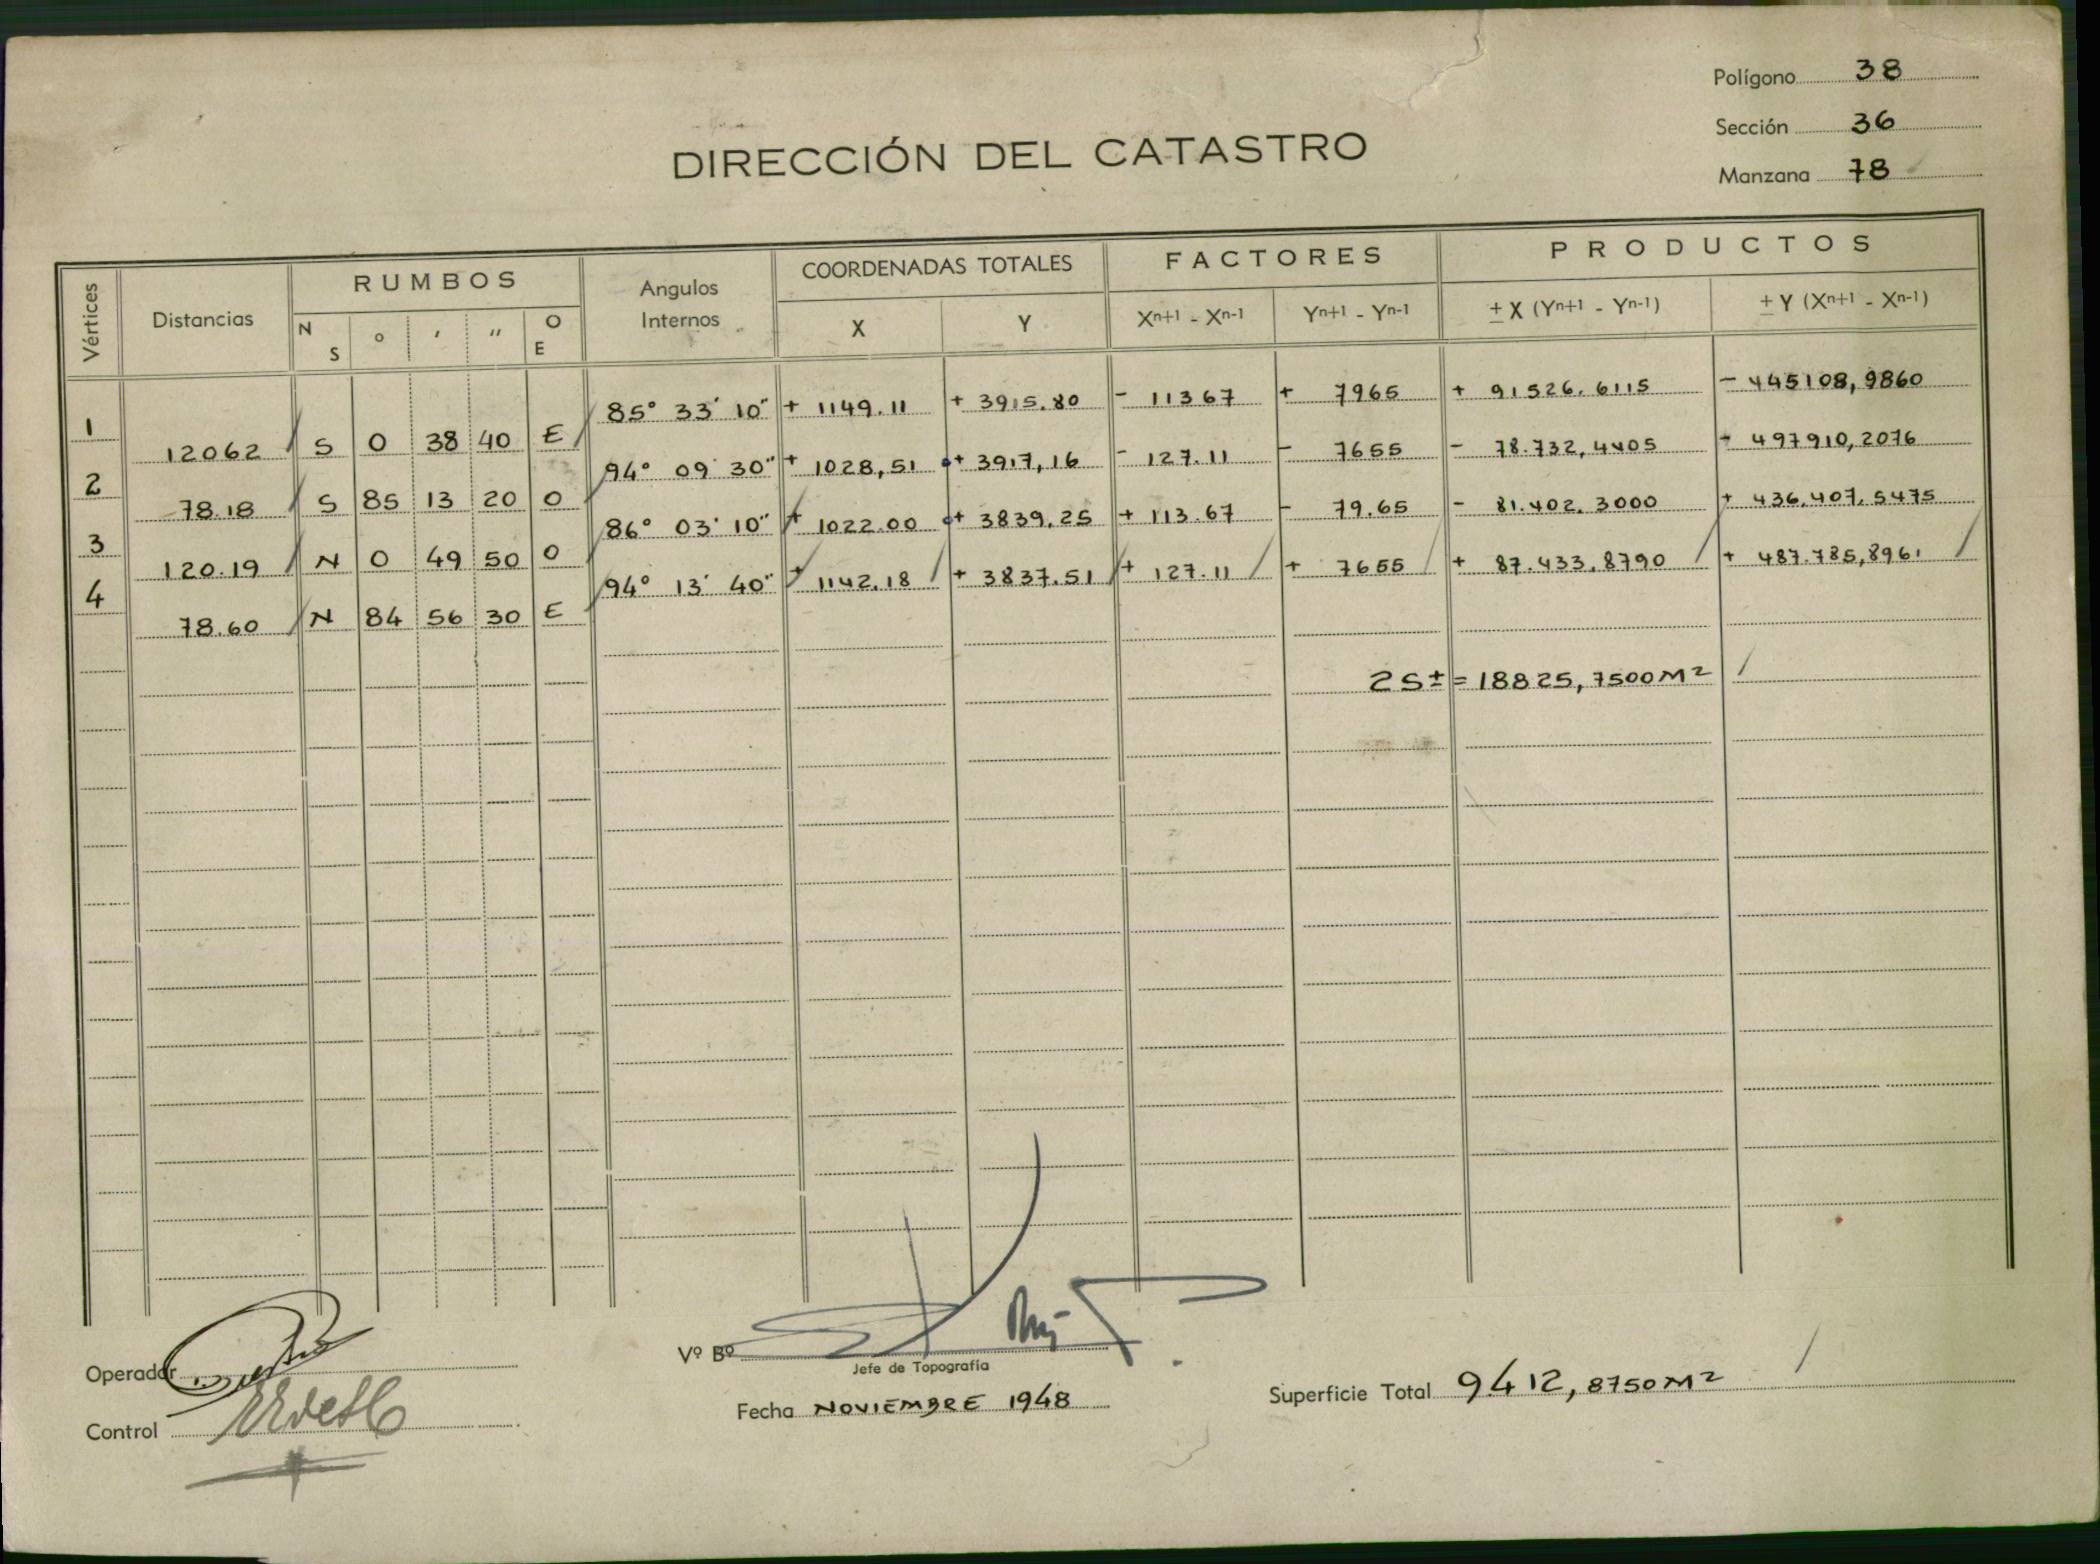 Polígono 38
Sección 36
Manzana 78
DIRECCIÓN DEL CATASTRO
Vértices Distancias RUMBOS Angulos Internos COORDENADAS TOTALES FACTORES PRODUCTOS
N S ° ′ ″ O E X Y Xn+1 - Xn-1 Yn+1 - Yn-1 ± X (Yn+1 - Yn-1) ± Y (Xn+1 - Xn-1)
85° 33' 10" + 1149.11 + 3915.80 - 11367 + 7965 + 91526.6115 - 445108,9860
1
12062 S 0 38 40 E
94° 09' 30" + 1028,51 + 3917,16 - 127.11 - 7655 - 78.732,4405 - 497910,2076
2
78.18 S 85 13 20 O
86° 03' 10" + 1022.00 + 3839.25 + 113.67 - 79.65 - 81.402.3000 + 436.407,5475
3
120.19 N 0 49 50 O
94° 13' 40" + 1142.18 + 3837.51 + 127.11 + 7655 + 87.433.8790 + 487.785,8961
4
78.60 N 84 56 30 E
2S± = 18825,7500 M²
Operador
Control
Vº Bº
Jefe de Topografía
Fecha NOVIEMBRE 1948
Superficie Total 9412,8750 M²